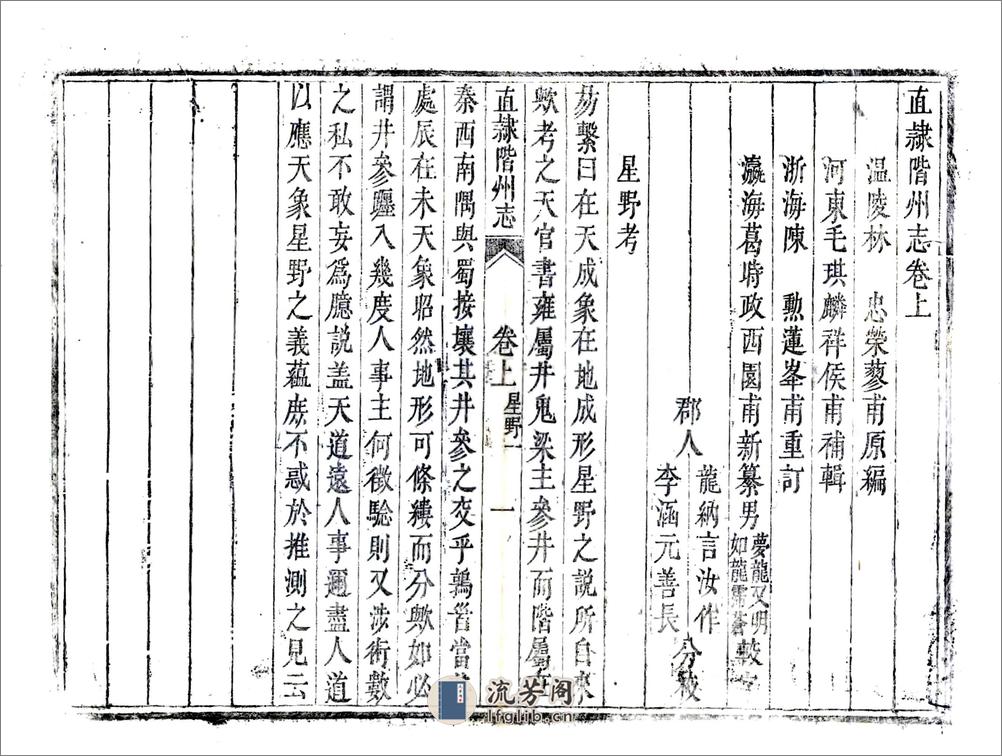 直隸階州志卷上
温陵林　忠榮蓼甫原編
河東毛琪麟祥侯甫補輯
浙海陳　勲蓮峯甫重訂
瀛海葛時政西園甫新纂男
夢龍又明
如龍霈蒼
較
郡人
龍納言汝作
李涵元善長
分
星野考
易繫曰在天成象在地成形星野之說所自來
歟考之天官書雍屬井鬼梁主參井而階屬在
直隸階州志
卷上
星野一
一
秦西南隅與蜀接壤其井參之交乎鶉首當
處辰在未天象昭然地形可條縷而分歟如必
謂井參躔入幾度人事主何徵驗則又涉術數
之私不敢妄爲臆說盖天道遠人事邇盡人道
以應天象星野之義蘊庶不惑於推測之見云
流芳阁
lfglib.cn